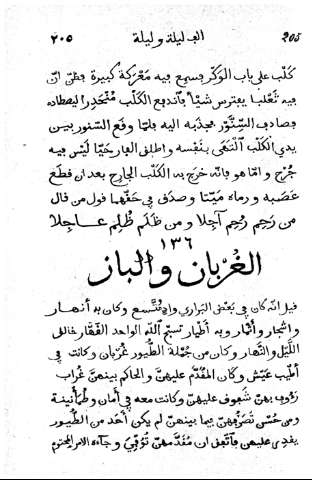 ٢٠٥ الف ليلة وليلة 205
كلب على باب الوكر فسمع فيه معركة كبيرة فظن ان
فيه ثعلبا يفترس شيأ فاندفع الكلب منحدرا ليصطاده
فصادف السنّور فجذبه اليه فلما وقع السنور بين
يدي الكلب التهى بنفسه واطلق الفار حيا ليس فيه
جرح واما هو فانه خرج به الكلب الجارح بعد ان قطع
عصبه ورماه ميتا وصدق في حقهما قول من قال
من رحم رُحم آجلا ومن ظلم ظُلم عاجلا
١٣٦
الغُربان والباز
قيل انه كان في بعض البراري وادٍ متسع وكان به أنهار
واشجار وأثمار وبه أطيار تسبح الله الواحد القهار خالق
الليل والنهار وكان من جملة الطيور غربان وكانت في
أطيب عيش وكان المقدم عليهن والحاكم بينهن غراب
رؤوف بهن شفوق عليهن وكانت معه في أمان وطمأنينة
ومن حسن تصرفهن فيما بينهن لم يكن أحد من الطيور
يقدر عليهن فاتفق ان مقدمهن توفي وجاءه الامر المحتوم